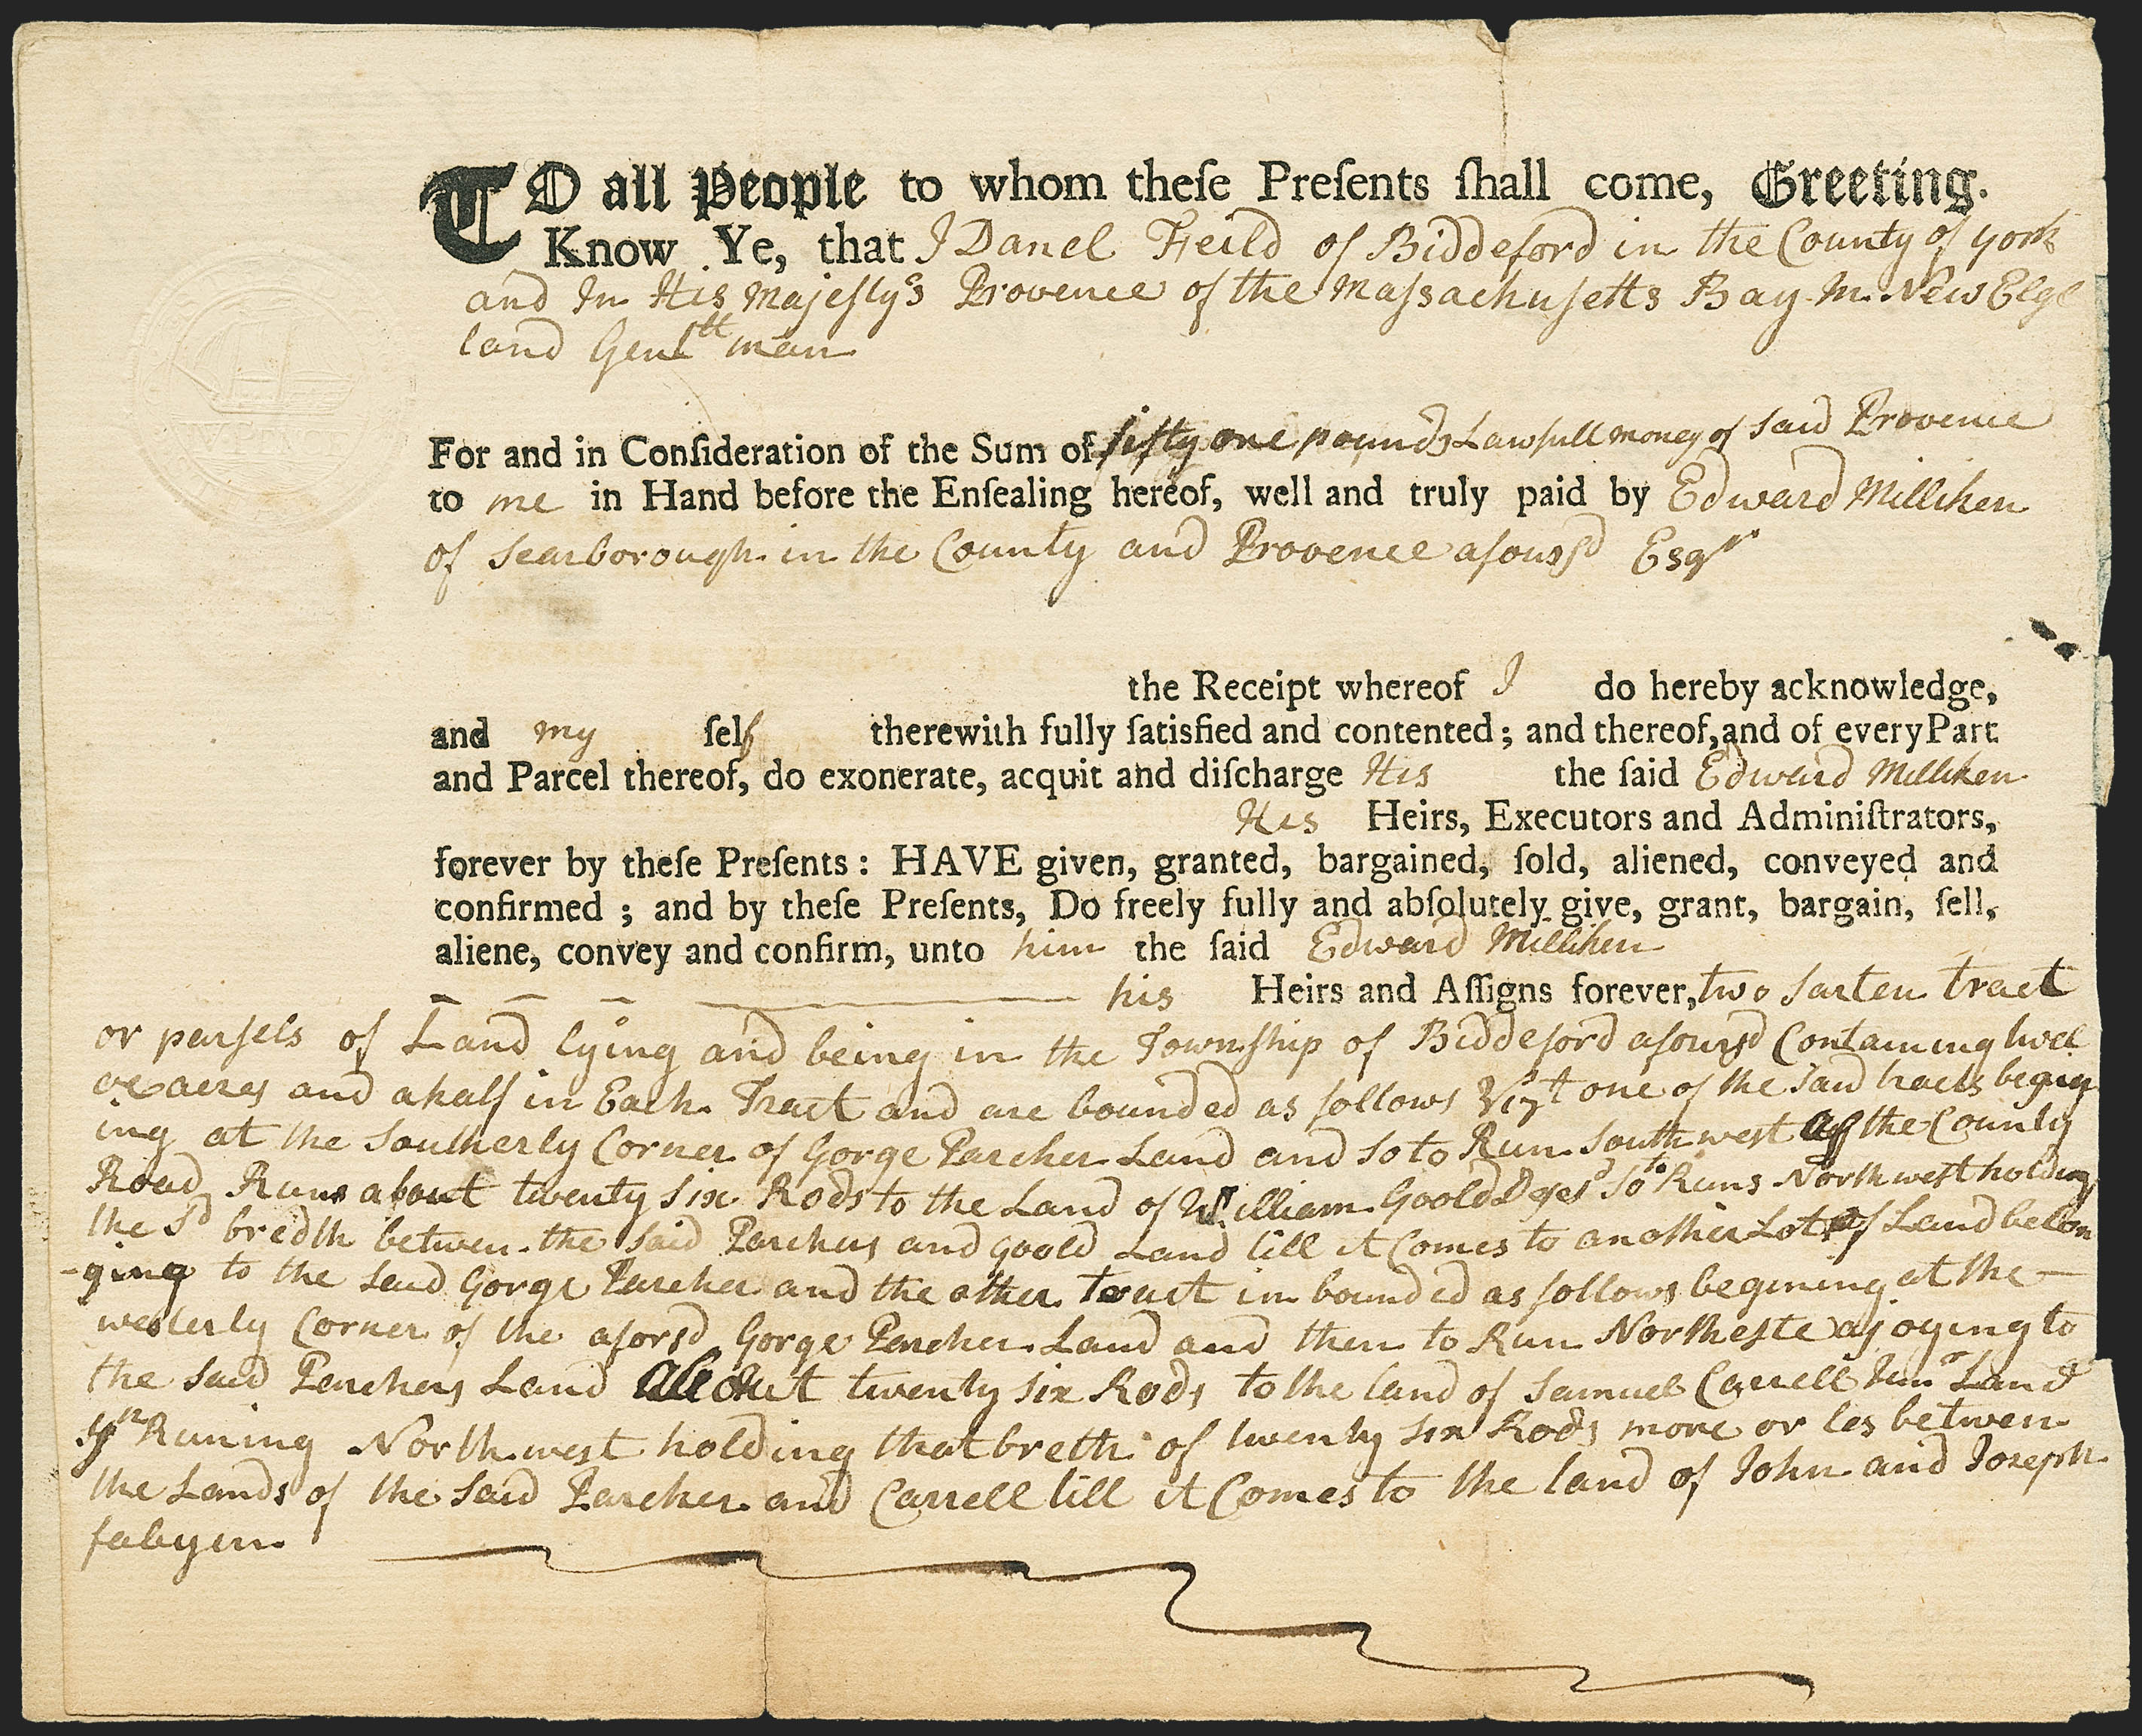 TO all People to whom theſe Preſents ſhall come, Greeting.
Know Ye, that I Danel Feild of Biddeford in the County of york
and In His Majesty's Provence of the Massachusetts Bay In New Elge
land Gentt man
For and in Conſideration of the Sum of fifty one pounds Lawfull money of Said Provence
to me in Hand before the Enſealing hereof, well and truly paid by Edward Milliken
of Scarborough in the County and Provence afoursd Esqr
the Receipt whereof I do hereby acknowledge,
and my ſelf therewith fully ſatisfied and contented; and thereof, and of every Part
and Parcel thereof, do exonerate, acquit and diſcharge His the ſaid Edward Milliken
His Heirs, Executors and Adminiſtrators,
forever by theſe Preſents: HAVE given, granted, bargained, ſold, aliened, conveyed and
confirmed; and by theſe Preſents, Do freely fully and abſolutely give, grant, bargain, ſell,
aliene, convey and confirm, unto him the ſaid Edward Milliken
his Heirs and Aſſigns forever, two Sarten tract
or parsels of Land lying and being in the Township of Biddeford afoursd Containing twel
ve acres and a half in Each Tract and are bounded as follows Vizt one of the Said tracts begin
ing at the Southerly Corner of Gorge Parcher Land and So to Run Southwest as the County
Road Runs about twenty Six Rods to the Land of William Goold So to Runs Northwest holding
the Sd bredth betwen the Said Parchers and goold Land till it Comes to another Lot of Land belon
-ging to the Said Gorge Parcher and the other tract im bounded as follows begining at the
westerly Corner of the aforsd Gorge Parcher Land and then to Run Northeste ajoying to
the Said Parchers Land about twenty Six Rods to the land of Samuel Carrell Junr Land
yn Runing Northwest holding that breth of twenty Six Rods more or les betwen
the Lands of the Said Parcher and Carrell till it Comes to the land of John and Joseph
fabyen